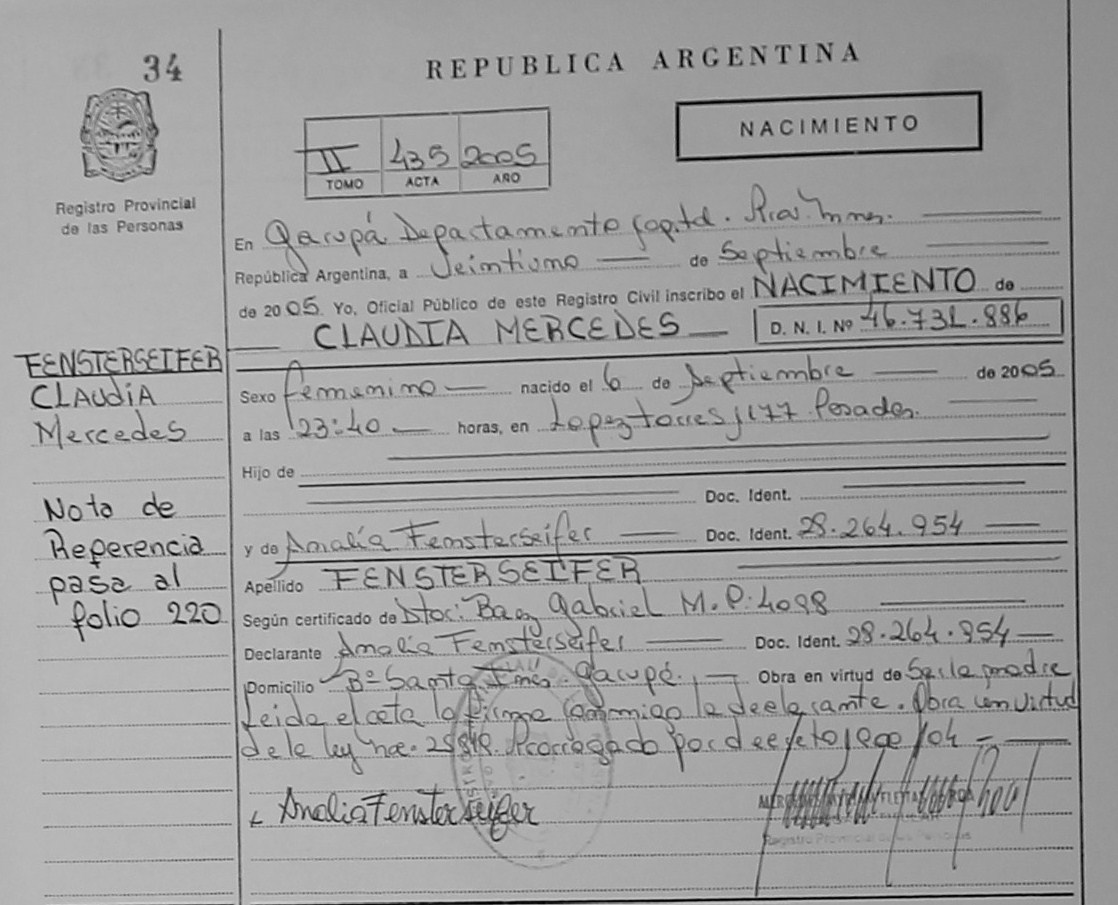 34
REPUBLICA ARGENTINA
NACIMIENTO
II 435 2005
TOMO ACTA AÑO
Registro Provincial
de las Personas
En Garupá Departamento Capital. Prov. Mnes.
República Argentina, a Veintiuno de Septiembre
de 2005 Yo, Oficial Público de este Registro Civil inscribo el NACIMIENTO de
CLAUDIA MERCEDES D. N. I. Nº 46.731.886
FENSTERSEIFER
CLAUDIA
Mercedes
Sexo femenino nacido el 6 de Septiembre de 2005
a las 23:40 horas, en Lopez torres 1177 Posadas.
Hijo de
Doc. Ident.
Nota de
Referencia
pasa al
folio 220
y de Analía Fensterseifer Doc. Ident. 28.264.954
Apellido FENSTERSEIFER
Según certificado de Dtor: Baez Gabriel M.P: 4098
Declarante Analía Fensterseifer Doc. Ident. 28.264.954
Domicilio Bº Santa Ines. Garupá. Obra en virtud de Ser la madre
Leida el acta la firma conmigo la declarante. Obra en virtud
de la ley nro. Prorrogado por decreto /04
AnaliaFensterseifer
Registro Provincial de las Personas